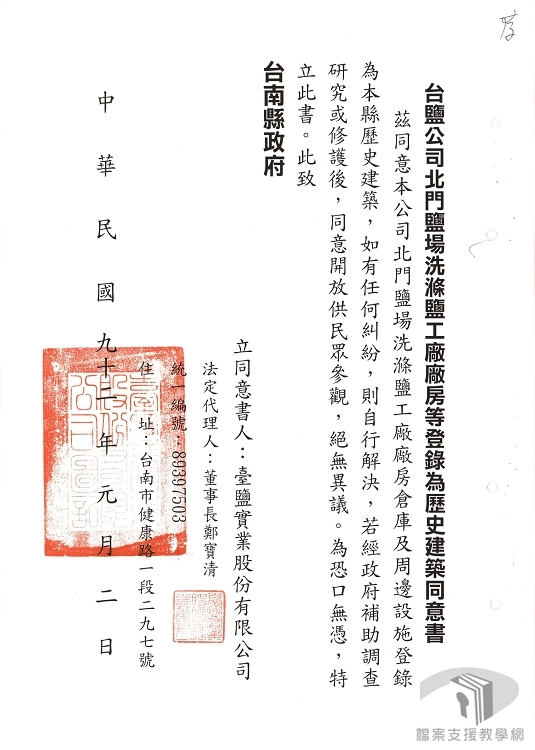 台鹽公司北門鹽場洗滌鹽工廠廠房等登錄為歷史建築同意書
茲同意本公司北門鹽場洗滌鹽工廠廠房倉庫及周邊設施登錄
為本縣歷史建築，如有任何糾紛，則自行解決，若經政府補助調查
研究或修護後，同意開放供民眾參觀，絕無異議。為恐口無憑，特
立此書。此致
台南縣政府
立同意書人：臺鹽實業股份有限公司
法定代理人：董事長鄭寶清
統一編號：89397503
住址：台南市健康路一段二九七號
中華民國九十二年元月二日
檔案支援教學網